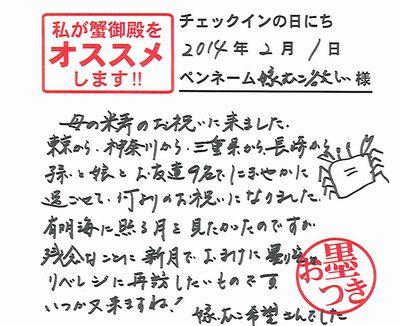 私が蟹御殿を
オススメ
します!!
チェックインの日にち
2014年2月1日
ペンネーム 嫁ムコ欲しい 様
母の米寿のお祝いに来ました.
東京から・神奈川から・三重県から・長崎から
孫と娘とお友達9名でにぎやかに
過ごせて、何よりのお祝いになりました.
有明海に照る月を見たかったのですが
残念なことに新月で、おまけに曇り空
リベンジに再訪したいものです
いつか又来ますね!
嫁ムコ希望さんでした
お墨つき